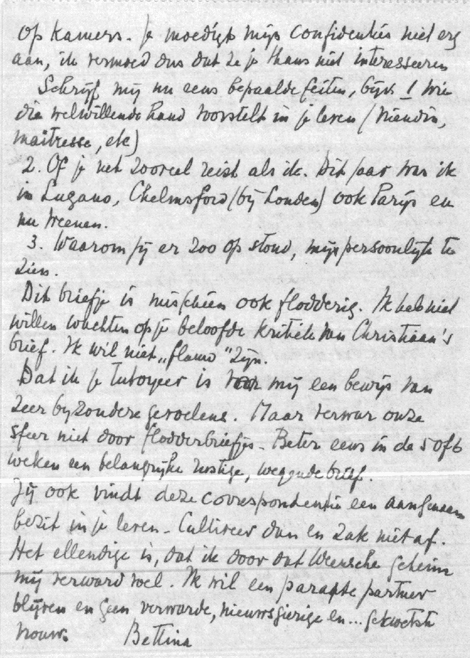 op kamers. Je moedigt mijn confidenties niet erg
aan, ik vermoed dus dat ze je thans niet interesseeren
Schrijf mij nu eens bepaalde feiten, bijv. 1 Wie
die welwillende hand voorstelt in je leven (vriendin,
maîtresse, etc)
2. Of je net zooveel reist als ik. Dit jaar was ik
in Lugano, Chelmsford (bij Londen) ook Parijs en
nu Weenen.
3. Waarom jij er zoo op stond, mijn persoonlijk te
zien.
Dit briefje is misschien ook flodderig. Ik heb niet
willen wachten op je beloofde kritiek van Christiaan's
brief. Ik wil niet „flauw" zijn.
Dat ik je tutoyeer is voor mij een bewijs van
zeer byzondere gevoelens. Maar verwar onze
sfeer niet door flodderbriefjes. Beter eens in de 5 of 6
weken een belangrijke rustige, brief.
Jij ook vindt deze correspondentie een aangenaam
bezit in je leven. Cultiveer dan en zak niet af.
Het ellendige is, dat ik door dat Weensche geheim
mij verward voel. Ik wil een partner
blijven en geen verwarde, nieuwsgierige en... gekwetste
vrouw.
Bettina